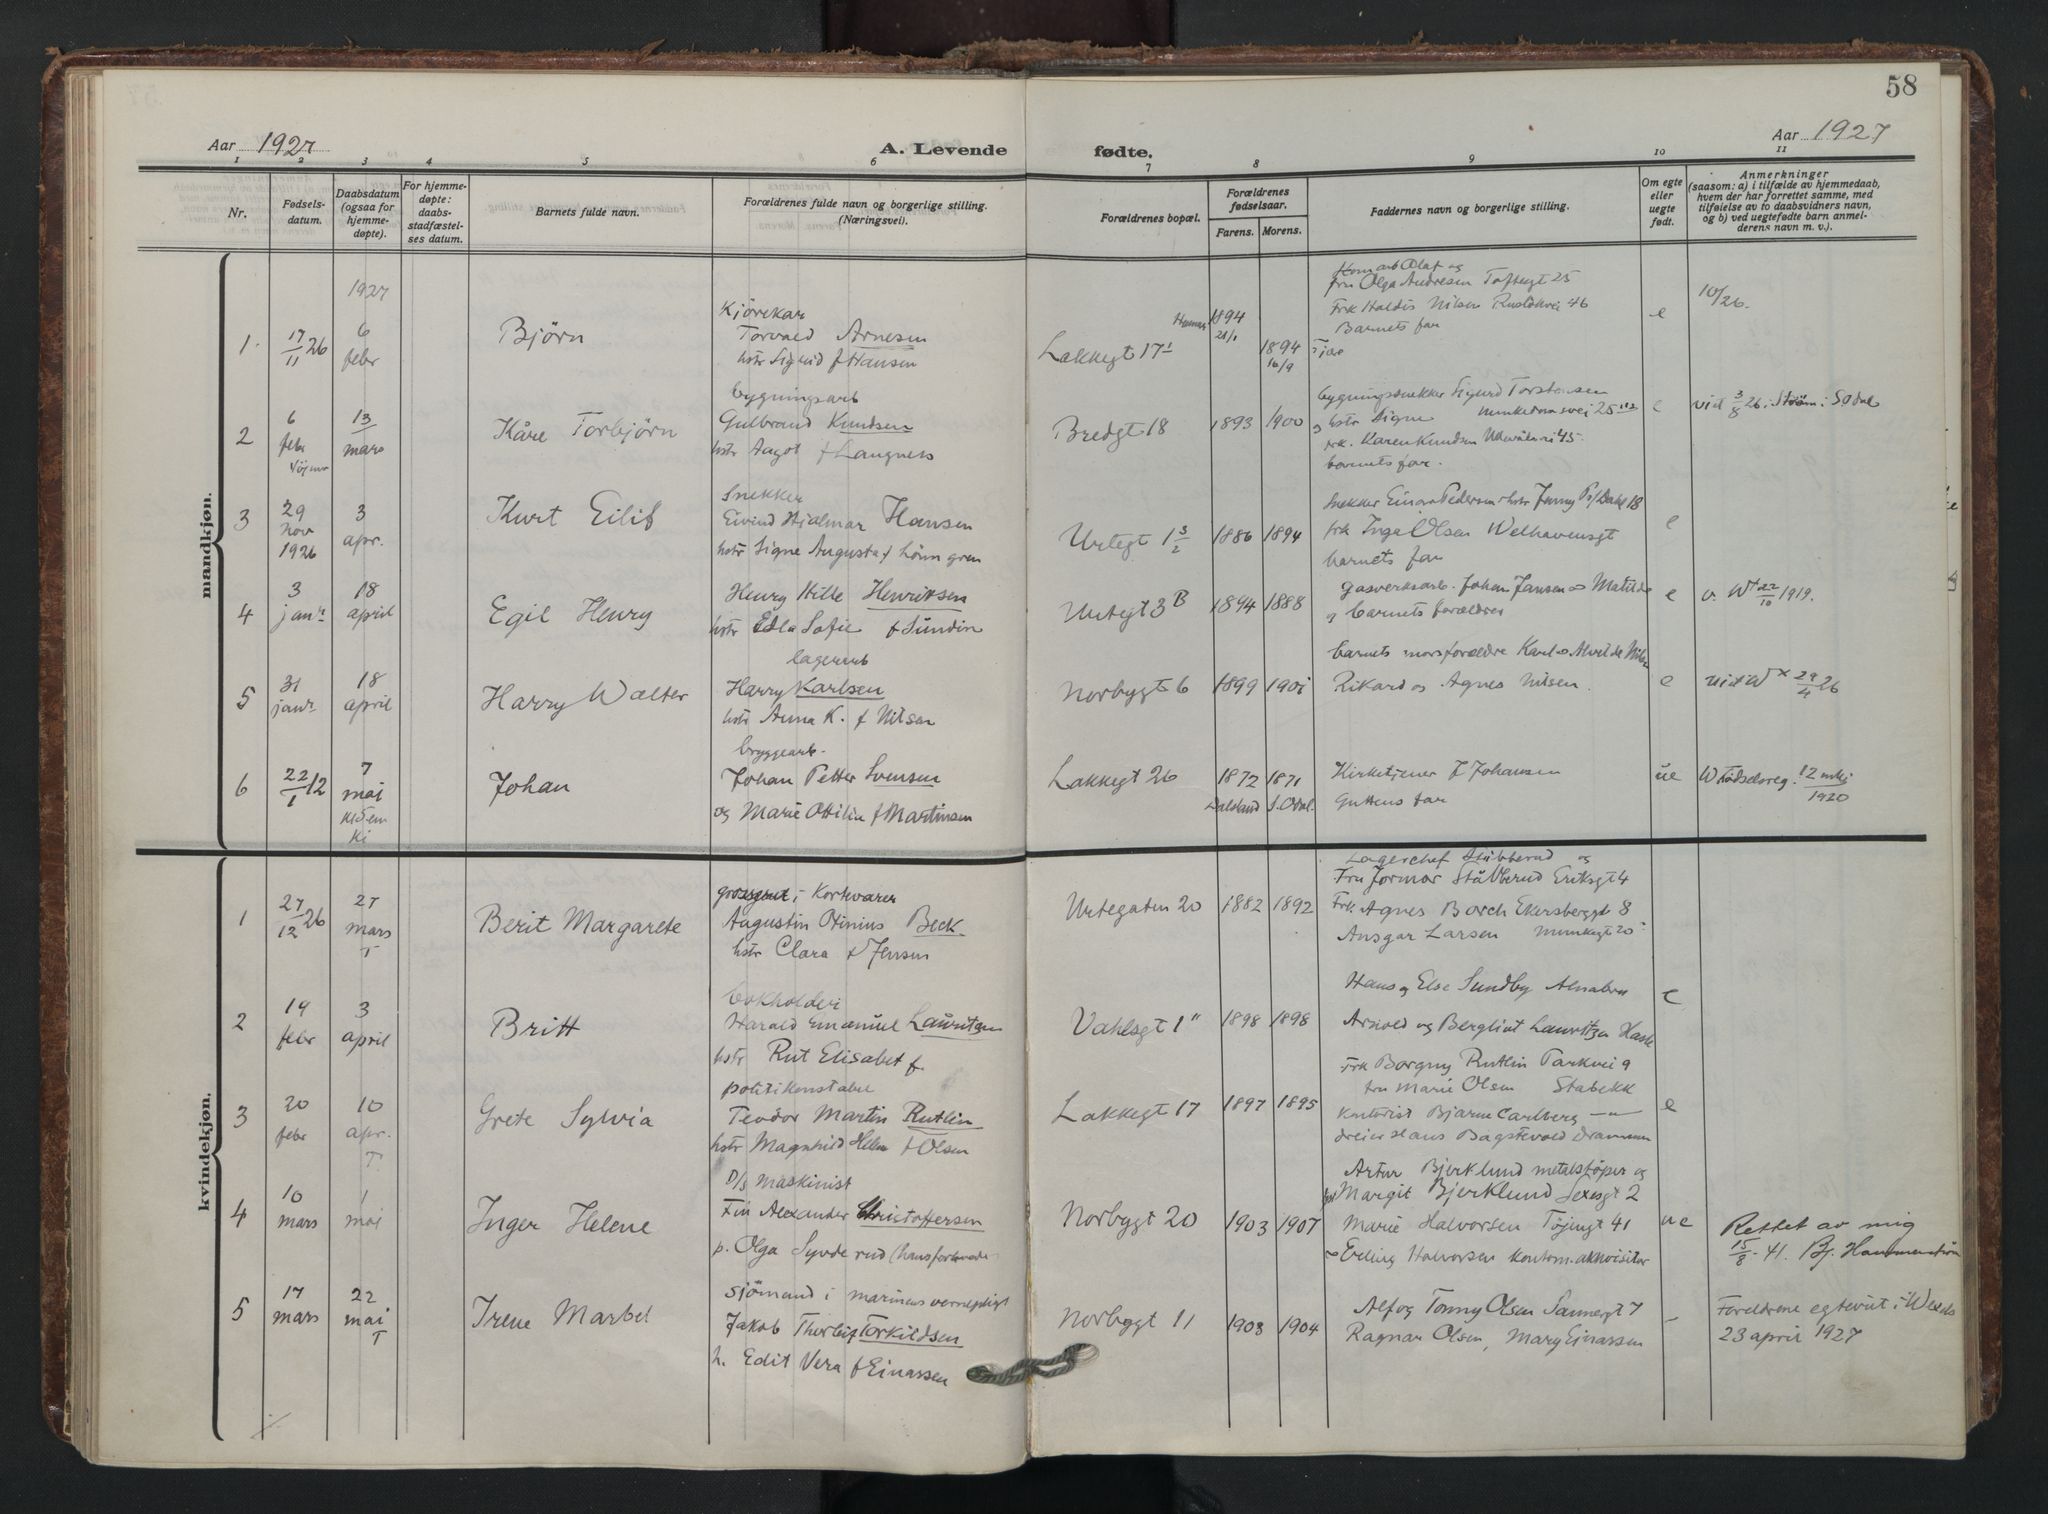 58
Aar 1927
A. Levende
fødte.
Aar 1927
1 2 3 4 5 6 7 8 9 10 11
Nr.
Fødsels-
datum.
Daabsdatum
(ogsaa for
hjemme-
døpte).
For hjemme-
døpte:
daabs-
stadfæstel-
ses datum.
Barnets fulde navn.
Forældrenes fulde navn og borgerlige stilling.
(Næringsvei).
Forældrenes bopæl.
Forældrenes
fødselsaar.
Farens. Morens.
Faddernes navn og borgerlige stilling.
Om egte
eller
uegte
født.
Anmerkninger
(saasom: a) i tilfælde av hjemmedaab,
hvem der har forrettet samme, med
tilføielse av to daabsvidners navn,
og b) ved uegtefødte barn anmel-
derens navn m. v.).
mandkjøn.
1927
1
17/11 26
6
febr
Björn
Kjörekar
Torvald Arnesen
hstr Sigrid f Hansen
Lakkegt 17
1894
21/1
1894
16/9
Olaf og
fru Olga Andresen Toftesgt 25
Frk Haldis Nilsen 46
Barnets far
e
10/26.
2
6
febr
13
mars
Kåre Torbjörn
bygningsarb
Gulbrand Knudsen
hstr Aagot f Langnes
Bredgt 18
1893
1900
bygningssnekker Sigurd Torstensen
og hstr Signe Munkedamsvei 25
frk. Karen Knudsen 45
barnets far.
e
3/8 26 i
3
29
nov
1926
3
apr.
Kurt Eilif
Snekker
Eivind Hjalmar Hansen
hstr Signe Augusta f Lönngren
Urtegt 1 3/2
1886
1894
Snekker Einar Pedersen hstr Jenny 18
frk Inga Olsen Welhavensgt
barnets far
e
4
3
janr
18
april
Egil Henry
Henry Hille Henriksen
hstr Edla Sofie f Sundin
Urtegt 3 B
1894
1888
gasverksarb. Johan Jansen o Matilde
og barnets forældre
e
v. 22/10 1919.
5
31
janr
18
april
Harry Walter
lagerarb
Harry Karlsen
hstr Anna K. f Nilsen
Norbygt 6
1899
1901
barnets morsforældre Karl o Alvilde
Rikard og Agnes Nilsen.
e
29/4 26
6
22/1 12
7
mai
Johan
bryggearb.
Johan Petter Svensen
og Marie Ottilie f Martinsen
Lakkegt 26
1872
Dalsland
1871
S. Odal.
Kirketjener J Johansen
Guttens far
ue
Fødselsreg. 12
1920
kvindekjøn.
1
27/12 26
27
mars
T
Berit Margarete
i Korkvarer
Augustin Otinius Beck
hstr Clara f Jensen
Urtegaten 20
1882
1892
Lagerchef Stubberud og
Fru Stubberud Eriksgt 4
Frk. Agnes Borch Ekersberggt 8
Ansgar Larsen Munkegt 20
e
2
19
febr
3
april
Britt
bokholder
Harald Emanuel Lauritzen
hstr Rut Elisabet f.
Vahlsgt 1
1898
1898
Hans og Else Sundby Alnabru
Arnold og Bergliot Lauritzen
e
3
20
febr
10
apr.
T.
Grete Sylvia
politikonstabel
Teodor Martin Rutlin
hstr Magnhild Helene f Olsen
Lakkegt 17
1897
1895
Frk Borgny Rutlin Parkvei 9
fru Marie Olsen Stabekk
kontorist Bjarne Carlberg —„—
dreier Hans Bagstevold Drammen
e
4
10
mars
1
mai
Inger Helene
D/s maskinist
Fin Alexander Christoffersen
p. Olga Synderud
Norbygt 20
1903
1907
Artur Bjerklund metalstöper og
Margit Bjerklund Sexesgt 2
Marie Halvorsen Töjengt 41
Erling Halvorsen kontorm. akkvisitør
ue
Rettet av mig
15/8-41. Bj. Hammerström
5
17
mars
22
mai
T
Irene Marbel
Sjömand i marinens vernepligt
Jakob Thorleif Torkildsen
h. Edit Vera f Einarsen
Norbygt 11
1903
1904
Alf og Tonny Olsen Sannergt 7
Ragnar Olsen, Mary Einarsen
Foreldrene egteviet i
23 april 1927